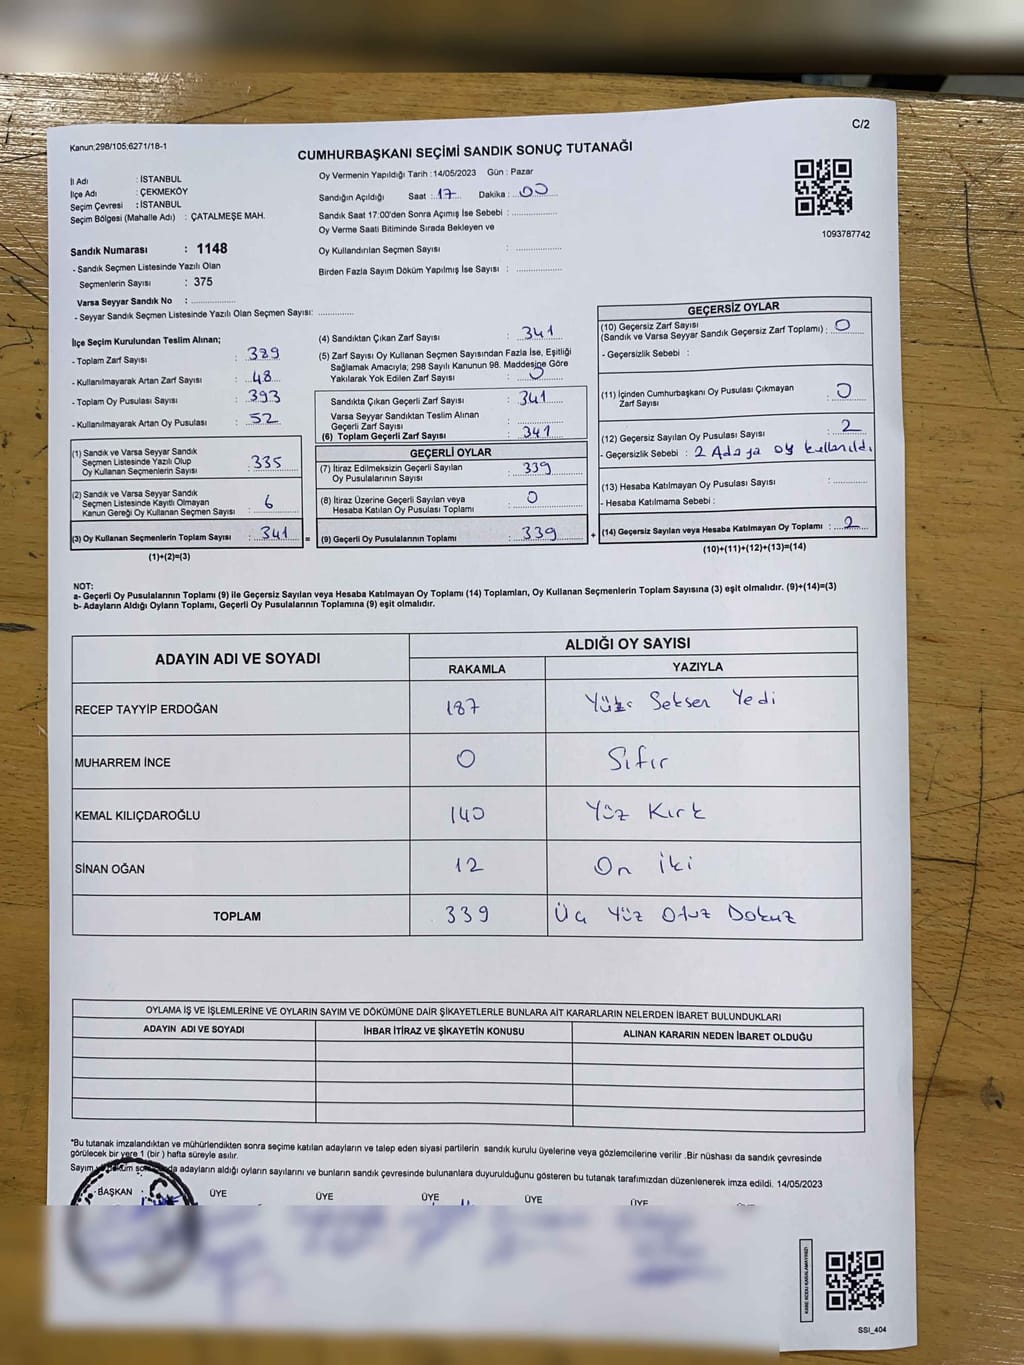 C/2
Kanun;298/105;6271/18-1
CUMHURBAŞKANI SEÇİMİ SANDIK SONUÇ TUTANAĞI
İl Adı : İSTANBUL
İlçe Adı : ÇEKMEKÖY
Seçim Çevresi : İSTANBUL
Seçim Bölgesi (Mahalle Adı) : ÇATALMEŞE MAH.
Sandık Numarası : 1148
- Sandık Seçmen Listesinde Yazılı Olan
Seçmenlerin Sayısı : 375
Varsa Seyyar Sandık No : ................
- Seyyar Sandık Seçmen Listesinde Yazılı Olan Seçmen Sayısı: ............
Oy Vermenin Yapıldığı Tarih : 14/05/2023 Gün : Pazar
Sandığın Açıldığı Saat : 17 Dakika : 00
Sandık Saat 17:00'den Sonra Açımış İse Sebebi : ................
Oy Verme Saati Bitiminde Sırada Bekleyen ve
Oy Kullandırılan Seçmen Sayısı : ................
Birden Fazla Sayım Döküm Yapılmış İse Sayısı : ................
1093787742
İlçe Seçim Kurulundan Teslim Alınan;
- Toplam Zarf Sayısı : 389
- Kullanılmayarak Artan Zarf Sayısı : 48
- Toplam Oy Pusulası Sayısı : 393
- Kullanılmayarak Artan Oy Pusulası : 52
(1) Sandık ve Varsa Seyyar Sandık
Seçmen Listesinde Yazılı Olup
Oy Kullanan Seçmenlerin Sayısı : 335
(2) Sandık ve Varsa Seyyar Sandık
Seçmen Listesinde Kayıtlı Olmayan
Kanun Gereği Oy Kullanan Seçmen Sayısı : 6
(3) Oy Kullanan Seçmenlerin Toplam Sayısı : 341 =
(1)+(2)=(3)
(4) Sandıktan Çıkan Zarf Sayısı : 341
(5) Zarf Sayısı Oy Kullanan Seçmen Sayısından Fazla İse, Eşitliği
Sağlamak Amacıyla; 298 Sayılı Kanunun 98. Maddesine Göre
Yakılarak Yok Edilen Zarf Sayısı : 0
Sandıkta Çıkan Geçerli Zarf Sayısı : 341
Varsa Seyyar Sandıktan Teslim Alınan
Geçerli Zarf Sayısı :
(6) Toplam Geçerli Zarf Sayısı : 341
GEÇERLİ OYLAR
(7) İtiraz Edilmeksizin Geçerli Sayılan
Oy Pusulalarının Sayısı : 339
(8) İtiraz Üzerine Geçerli Sayılan veya
Hesaba Katılan Oy Pusulası Toplamı : 0
(9) Geçerli Oy Pusulalarının Toplamı : 339 +
GEÇERSİZ OYLAR
(10) Geçersiz Zarf Sayısı
(Sandık ve Varsa Seyyar Sandık Geçersiz Zarf Toplamı) : 0
- Geçersizlik Sebebi :
(11) İçinden Cumhurbaşkanı Oy Pusulası Çıkmayan
Zarf Sayısı : 0
(12) Geçersiz Sayılan Oy Pusulası Sayısı : 2
- Geçersizlik Sebebi : 2 Adaya oy kullanıldı
(13) Hesaba Katılmayan Oy Pusulası Sayısı : ............
- Hesaba Katılmama Sebebi :
(14) Geçersiz Sayılan veya Hesaba Katılmayan Oy Toplamı : 2
(10)+(11)+(12)+(13)=(14)
NOT:
a- Geçerli Oy Pusulalarının Toplamı (9) ile Geçersiz Sayılan veya Hesaba Katılmayan Oy Toplamı (14) Toplamları, Oy Kullanan Seçmenlerin Toplam Sayısına (3) eşit olmalıdır. (9)+(14)=(3)
b- Adayların Aldığı Oyların Toplamı, Geçerli Oy Pusulalarının Toplamına (9) eşit olmalıdır.
ADAYIN ADI VE SOYADI ALDIĞI OY SAYISI
RAKAMLA YAZIYLA
RECEP TAYYİP ERDOĞAN 187 Yüz Seksen Yedi
MUHARREM İNCE 0 Sıfır
KEMAL KILIÇDAROĞLU 140 Yüz Kırk
SİNAN OĞAN 12 On iki
TOPLAM 339 Üç Yüz Otuz Dokuz
OYLAMA İŞ VE İŞLEMLERİNE VE OYLARIN SAYIM VE DÖKÜMÜNE DAİR ŞİKAYETLERLE BUNLARA AİT KARARLARIN NELERDEN İBARET BULUNDUKLARI
ADAYIN ADI VE SOYADI İHBAR İTİRAZ VE ŞİKAYETİN KONUSU ALINAN KARARIN NEDEN İBARET OLDUĞU
*Bu tutanak imzalandıktan ve mühürlendikten sonra seçime katılan adayların ve talep eden siyasi partilerin sandık kurulu üyelerine veya gözlemcilerine verilir .Bir nüshası da sandık çevresinde
görülecek bir yere 1 (bir ) hafta süreyle asılır.
Sayım adayların aldığı oyların sayılarını ve bunların sandık çevresinde bulunanlara duyurulduğunu gösteren bu tutanak tarafımızdan düzenlenerek imza edildi. 14/05/2023
BAŞKAN ÜYE ÜYE ÜYE ÜYE ÜYE
KARE KODU KARALAMAYINIZ!
SSI_404